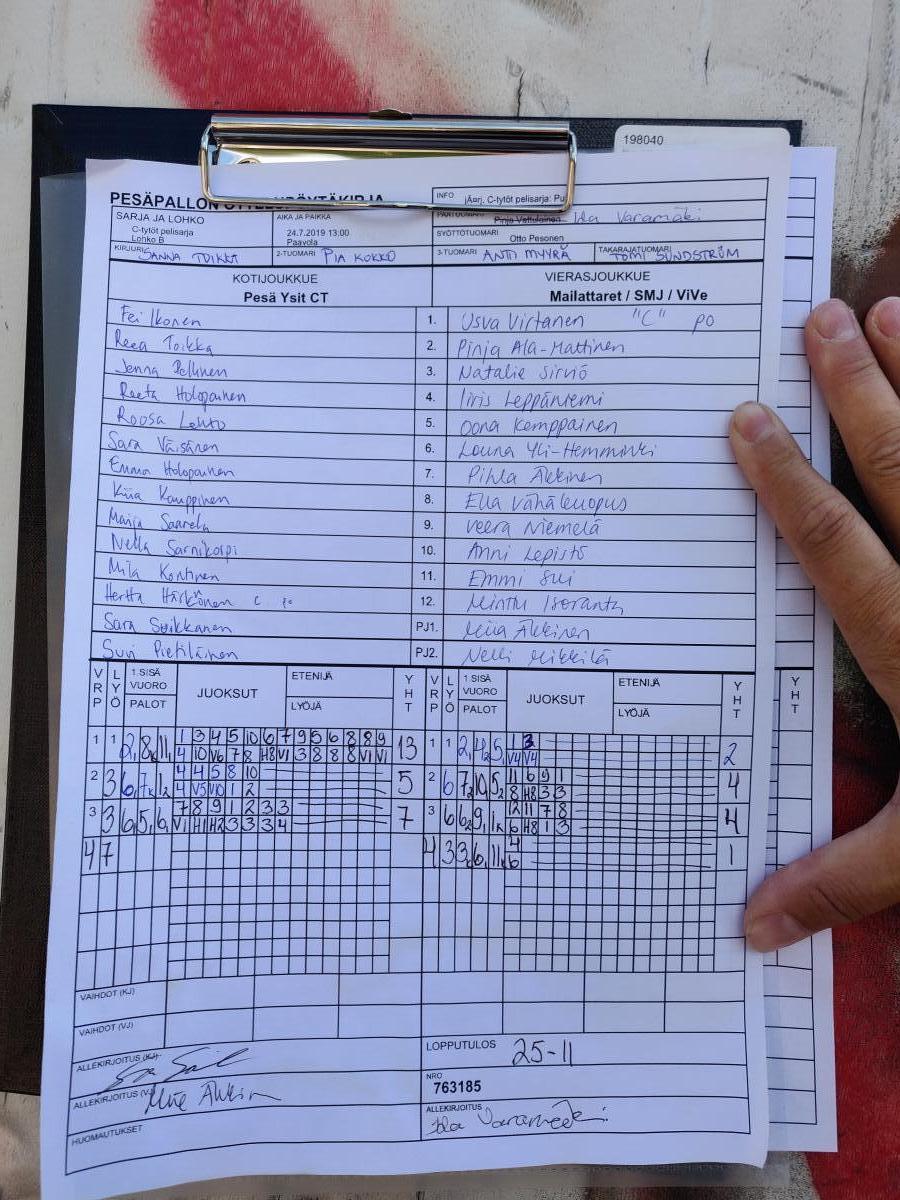 198040
PESÄPALLON OTTELUPÖYTÄKIRJA
INFO jÄ¤rj. C-tytöt pelisarja: Pu
SARJA JA LOHKO
C-tytöt pelisarja
Lohko B
AIKA JA PAIKKA
24.7.2019 13:00
Paavola
PÄÄTUOMARI Ida Varamäki
SYÖTTÖTUOMARI Otto Pesonen
KIRJURI SANNA TOIKKA
2-TUOMARI PIA KOKKO
3-TUOMARI ANTI MYYRÄ
TAKARAJATUOMARI TOMI SUNDSTRÖM
KOTIJOUKKUE VIERASJOUKKUE
Pesä Ysit CT Mailattaret / SMJ / ViVe
Fei Ikonen 1. Usva Virtanen "C" po
Reea Toikka 2. Pinja Ala-Mattinen
Jenna Pellinen 3. Natalie Sirviö
Reeta Holopainen 4. Iiris Leppäniemi
Roosa Lehto 5. Oona Kemppainen
Sara Väisänen 6. Louna Yli-Hemminki
Emma Holopainen 7. Pihla Äkkinen
Kiia Kauppinen 8. Ella Vähäkuopus
Maija Saarela 9. Veera Niemelä
Nella Sarnikorpi 10. Anni Lepistö
Mila Kontinen 11. Emmi Sui
Hertta Härkönen C po 12. Minttu Isoranta
Sara Suikkanen PJ1. Miia Äkkinen
Suvi Pietiläinen PJ2. Nelli Mikkilä
VRP LYÖ 1.SISÄ VUORO PALOT JUOKSUT ETENIJÄ LYÖJÄ YHT VRP LYÖ 1.SISÄ VUORO PALOT JUOKSUT ETENIJÄ LYÖJÄ YHT YHT
1 1 1 3 4 5 10 6 7 9 5 6 8 8 9 13 1 1 1 3 2
4 10 V6 7 8 H8 V1 3 8 8 8 V1 V1 V4 V4
2 3 4 4 5 8 10 5 2 6 11 6 9 1 4
4 V5 V10 1 2 8 H8 3 3
3 3 7 8 9 1 2 3 3 7 3 6 12 11 7 8 4
V1 H1 H2 3 3 3 4 6 H8 1 3
4 7 4 3 4 1
6
VAIHDOT (KJ)
VAIHDOT (VJ)
ALLEKIRJOITUS (KJ)
LOPPUTULOS 25-11
ALLEKIRJOITUS (VJ) Miia Äkkinen
NRO
763185
HUOMAUTUKSET
ALLEKIRJOITUS Ida Varamäki